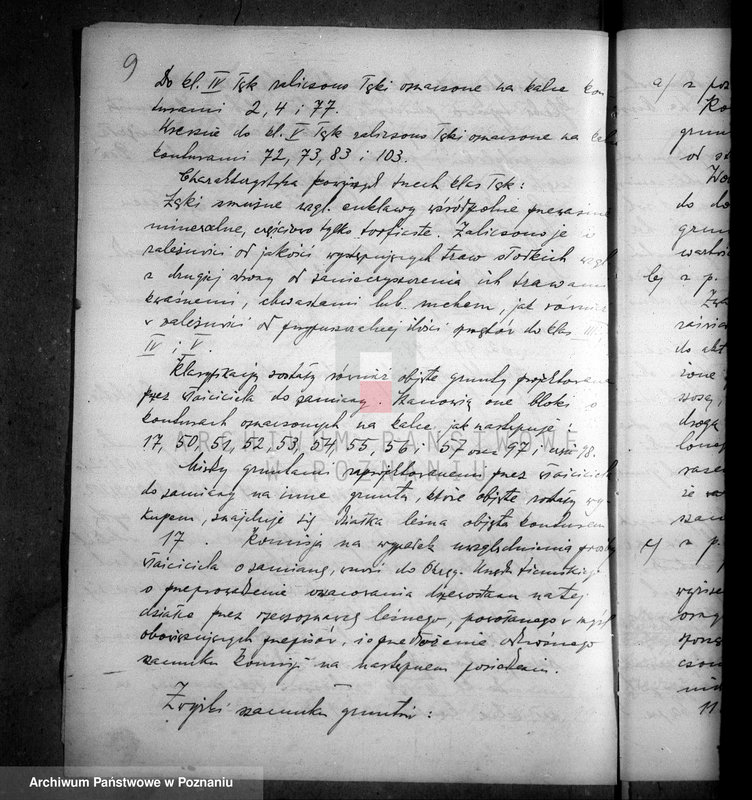 9
Do kl. IV łąk zaliczono łąki oznaczone na kalce kon
turami 2, 4 i 77.
Wreszcie do kl. V łąk zaliczono łąki oznaczone na kalce
konturami 72, 73, 83 i 103.
Charakterystyka powyższych trzech klas łąk:
Łąki smużne wzgl. enklawy wśródpolne przeważnie
mineralne, częściowo tylko torfiaste. Zaliczono je w
zależności od jakości występujących traw słodkich wzgl.
z drugiej strony od zanieczyszczenia ich trawami
kwaśnemi, chwastami lub mchem, jak również
w zależności od przypuszczalnej ilości sprzętów do klas III,
IV i V.
Klasyfikacją zostały również objęte grunty projektowane
przez właściciela do zamiany. Stanowią one bloki o
konturach oznaczonych na kalce jak następuje:
17, 50, 51, 52, 53, 54, 55, 56 i 57 oraz 97 i 98.
Między gruntami zaprojektowanemi przez właściciela
do zamiany na inne grunta, które objęte zostały wy-
kupem, znajduje się działka leśna objęta konturem
17. Komisja na wypadek uwzględnienia prośby
właściciela o zamianę, wnosi do Okręg. Urzędu Ziemskiego
o przeprowadzenie oszacowania drzewostanu na tej
działce przez rzeczoznawcę leśnego, powołanego w myśl
obowiązujących przepisów, i o przedłożenie odnośnego
szacunku Komisji na następnem posiedzeniu.
szacunku gruntów:
a) z
b) z p.
c) z p.
ARCHIWUM PAŃSTWOWE
W POZNANIU
Archiwum Państwowe w Poznaniu